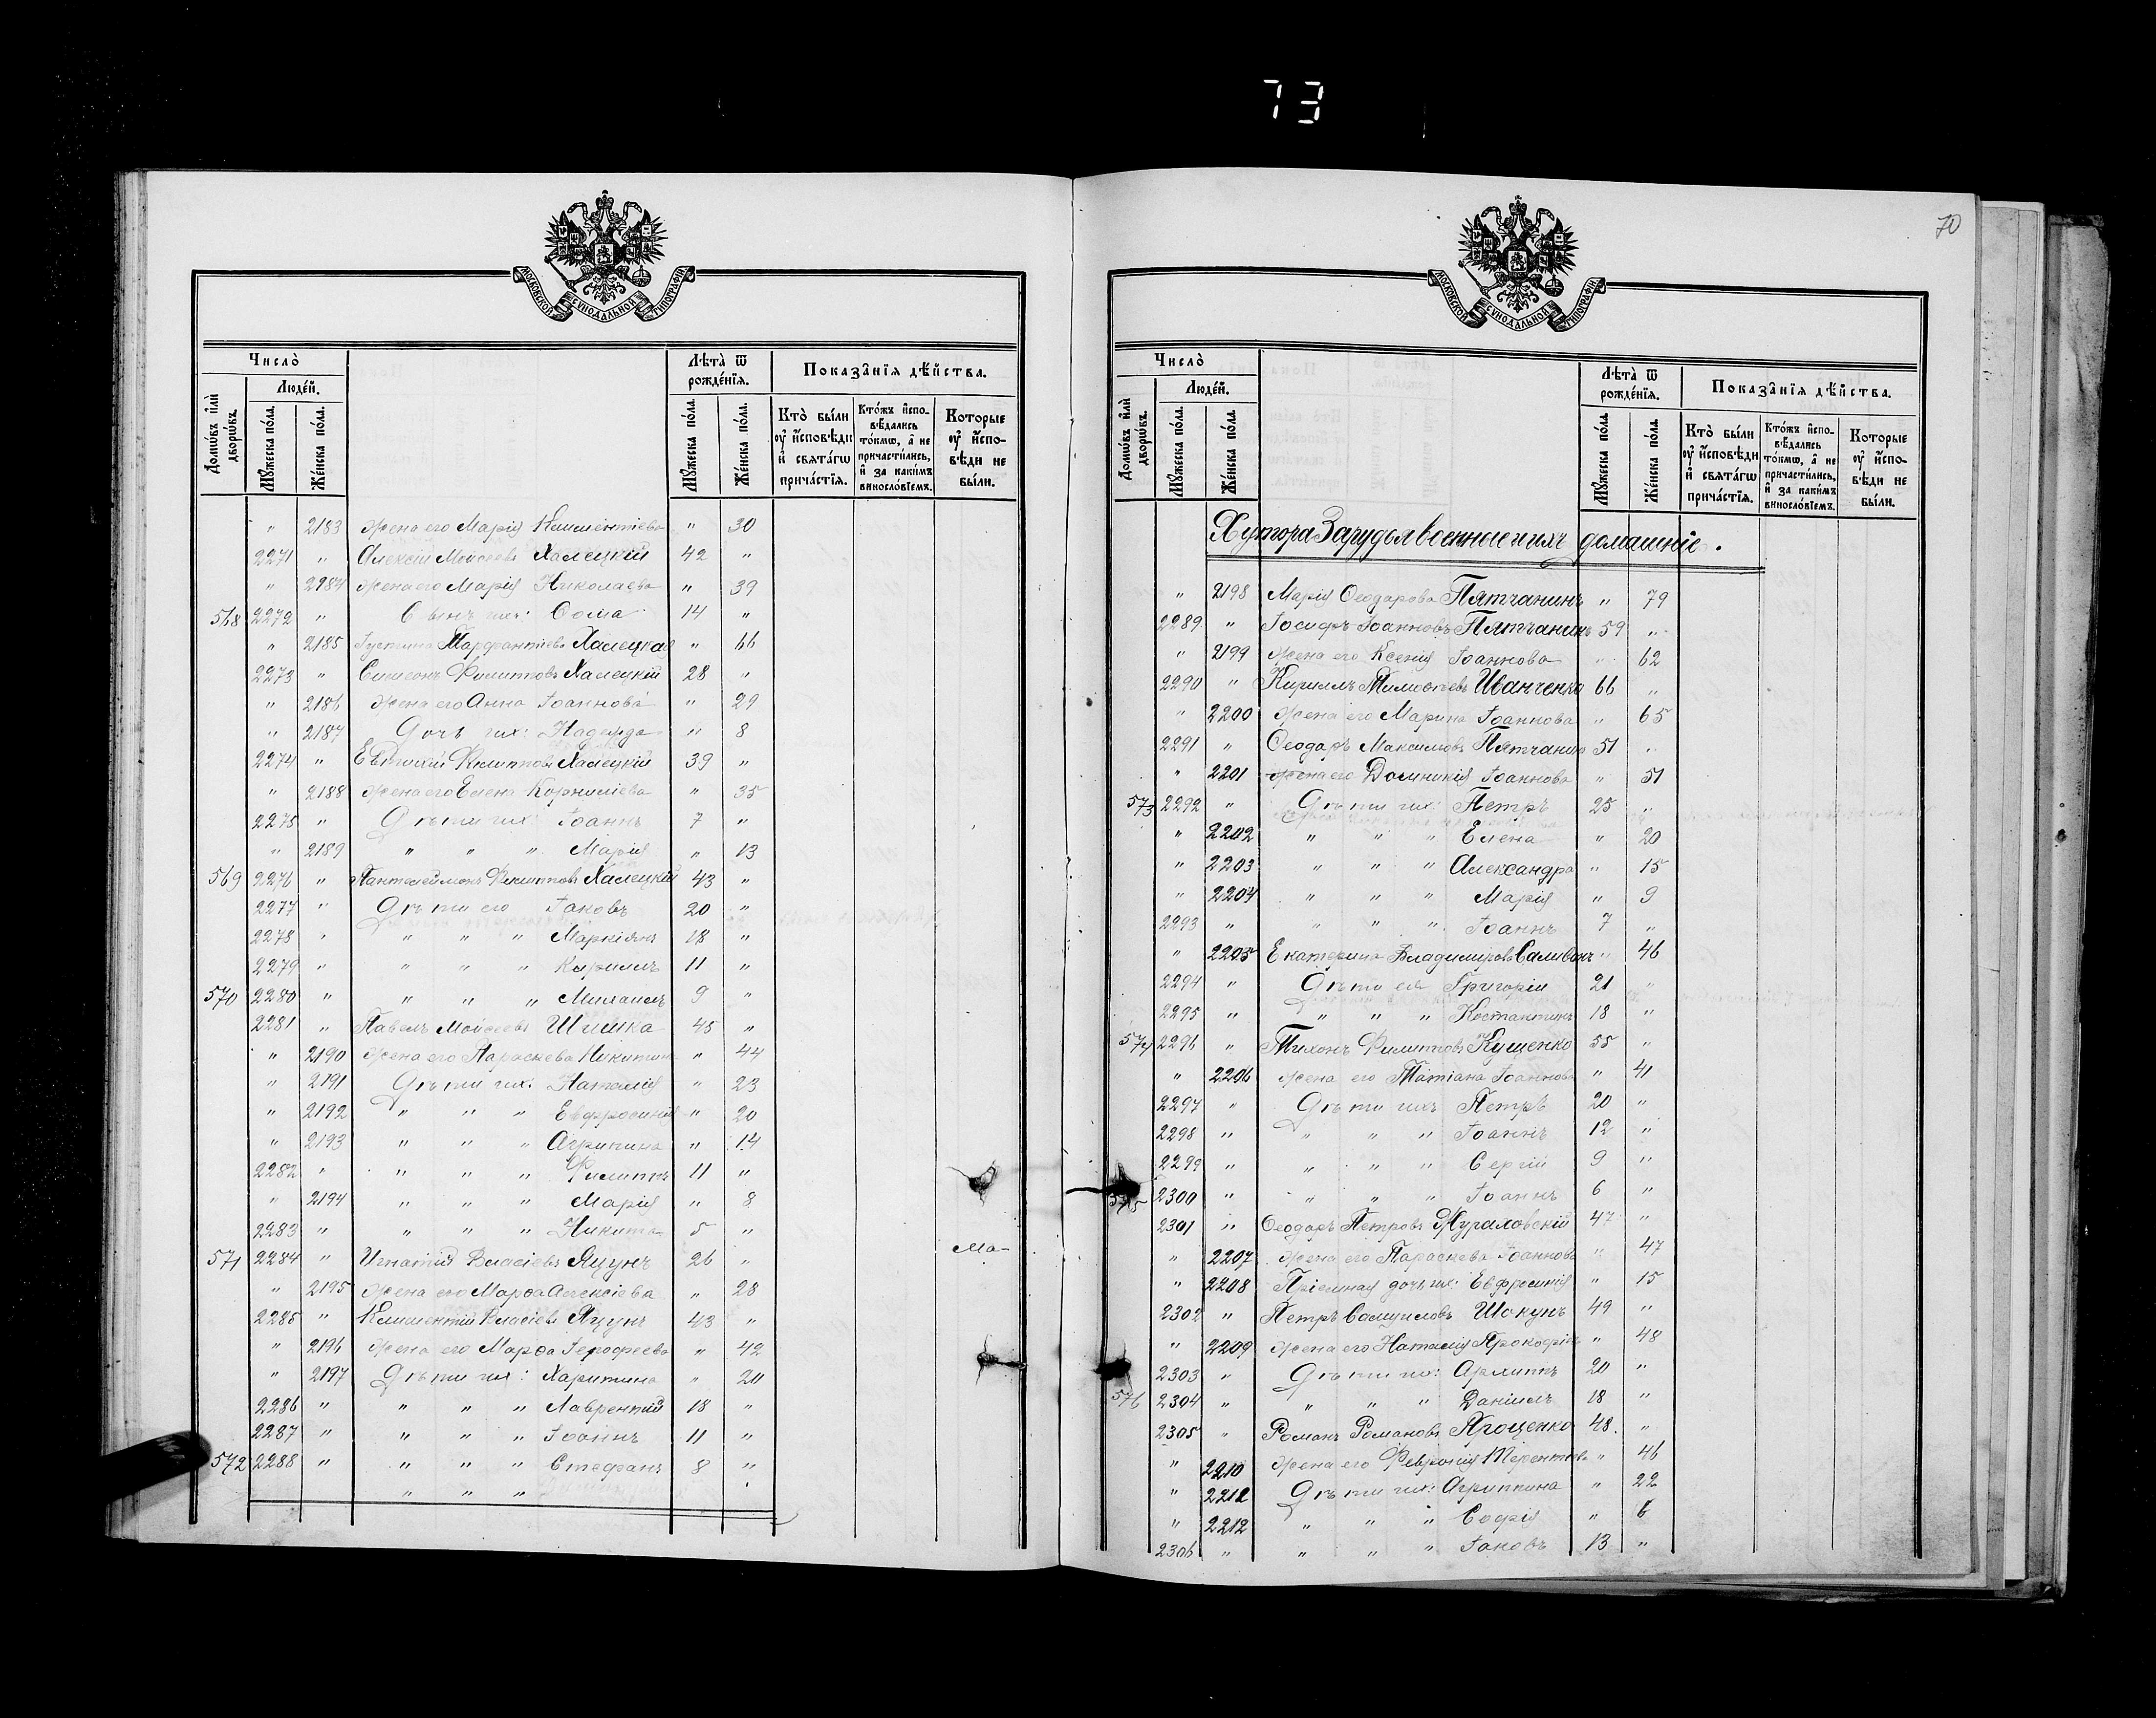 73
70
МОСКОВСКОЙ СѴНОДАЛЬНОЙ ТИПОГРАФІИ
Число̀
Домѡ́въ и҆лѝ дворѡ́въ.
Люде́й.
Мꙋ́жеска по́ла.
Же́нска по́ла.
Лѣ́та ѿ рожде́нїѧ.
Мꙋ́жеска по́ла.
Же́нска по́ла.
Показа̑нїѧ дѣ́йства.
Кто̀ бы́ли оу҆ и҆сповѣ́ди и҆ свѧта́гѡ прича́стїѧ.
Кто́жъ и҆сповѣ́дались то́кмѡ, а҆ не причасти́лись, и҆ за каки́мъ винослѡ́вїемъ.
Которые оу҆ и҆сповѣ́ди не бы́ли.
" 2183 Жена его Марія Климентіева " 30
2271 " Алексій Моисеевъ Халецкій 42 "
" 2184 Жена его Марія Николаева " 39
568 2272 " Сынъ ихъ: Ѳома 14 "
" 2185 Халецкая " 66
2273 " Симеонъ Филипповъ Халецкій 28 "
" 2186 Жена его Анна Іоаннова " 29
" 2187 Дочь ихъ: Надежда " 8
2274 " Евтихій Филипповъ Халецкій 39 "
" 2188 Жена его Елена Корниліева " 35
2275 " Дѣти ихъ: Іоаннъ 7 "
" 2189 " " " Марія " 13
569 2276 " Пантелеймонъ Филипповъ Халецкій 43 "
2277 " Дѣти его Іаковъ 20 "
2278 " " " " Маркіянъ 18 "
2279 " " " " Кириллъ 11 "
570 2280 " " " " Михаилъ 9 "
2281 " Павелъ Моисеевъ Шишка 45 "
" 2190 Жена его Параскева Никитина " 44
" 2191 Дѣти ихъ: Наталія " 23
" 2192 " " " Евфросинія " 20
" 2193 " " " Агрипина " 14
2282 " " " " Филиппъ 11 "
" 2194 " " " Марія " 8
2283 " " " " Никита 5 "
571 2284 " Игнатій Власіевъ Яцунъ 26 "
" 2195 Жена его Марѳа Алексіева " 28
2285 " Климентій Власіевъ Яцунъ 43 "
" 2196 Жена его Марѳа Іерофеева " 42
" 2197 Дѣти ихъ: Харитина " 20
2286 " " " " Лаврентій 18 "
2287 " " " " Іоаннъ 11 "
572 2288 " " " " Стефанъ 8 "
" " "
Ма-
Число̀
Домѡ́въ и҆лѝ дворѡ́въ.
Люде́й.
Мꙋ́жеска по́ла.
Же́нска по́ла.
МОСКОВСКОЙ СѴНОДАЛЬНОЙ ТИПОГРАФІИ
Лѣ́та ѿ рожде́нїѧ.
Мꙋ́жеска по́ла.
Же́нска по́ла.
Показа̑нїѧ дѣ́йства.
Кто̀ бы́ли оу҆ и҆сповѣ́ди и҆ свѧта́гѡ прича́стїѧ.
Кто́жъ и҆сповѣ́дались то́кмѡ, а҆ не причасти́лись, и҆ за каки́мъ винослѡ́вїемъ.
Которые оу҆ и҆сповѣ́ди не бы́ли.
Хутора Зарудья военные и ихъ домашніе.
" 2198 Марія Ѳеодорова Пятчанинъ " 79
2289 " Іосифъ Іоанновъ Пятчанинъ 59 "
" 2199 Жена его Ксенія Іоаннова " 62
2290 " Кириллъ Тимоѳѣевъ Иванченко 66 "
" 2200 Жена его Марина Іоаннова " 65
2291 " Ѳеодоръ Максимовъ Пятчанинъ 51 "
" 2201 Жена его Домникія Іоаннова " 51
573 2292 " Дѣти ихъ: Петръ 25 "
" 2202 " " " Елена " 20
" 2203 " " " Александра " 15
" 2204 " " " Марія " 9
2293 " " " " Іоаннъ 7 "
" 2205 Екатерина Владимірова Саливонъ " 46
2294 " Дѣти ея Григорій 21 "
2295 " " " " Костантинъ 18 "
574 2296 " Тихонъ Филипповъ Кущенко 55 "
" 2206 Жена его Татіана Іоаннова " 41
2297 " Дѣти ихъ Петръ 20 "
2298 " " " " Іоаннъ 12 "
2299 " " " " Сергій 9 "
575 2300 " " " " Іоаннъ 6 "
2301 " Ѳеодоръ Петровъ Жураховскій 47 "
" 2207 Жена его Параскева Іоаннова " 47
" 2208 Пріемная дочь ихъ: Евфросинія " 15
2302 " Петръ Самуиловъ Шокунъ 49 "
" 2209 Жена его Наталія Прокофіева " 48
2303 " Дѣти ихъ: Архиппъ 20 "
576 2304 " " " " Даніилъ 18 "
2305 " Романъ Романовъ Ярощенко 48 "
" 2210 Жена его Февронія Терентіева " 46
" 2211 Дѣти ихъ: Агриппина " 22
" 2212 " " " Софія " 6
2306 " " " " Іаковъ 13 "